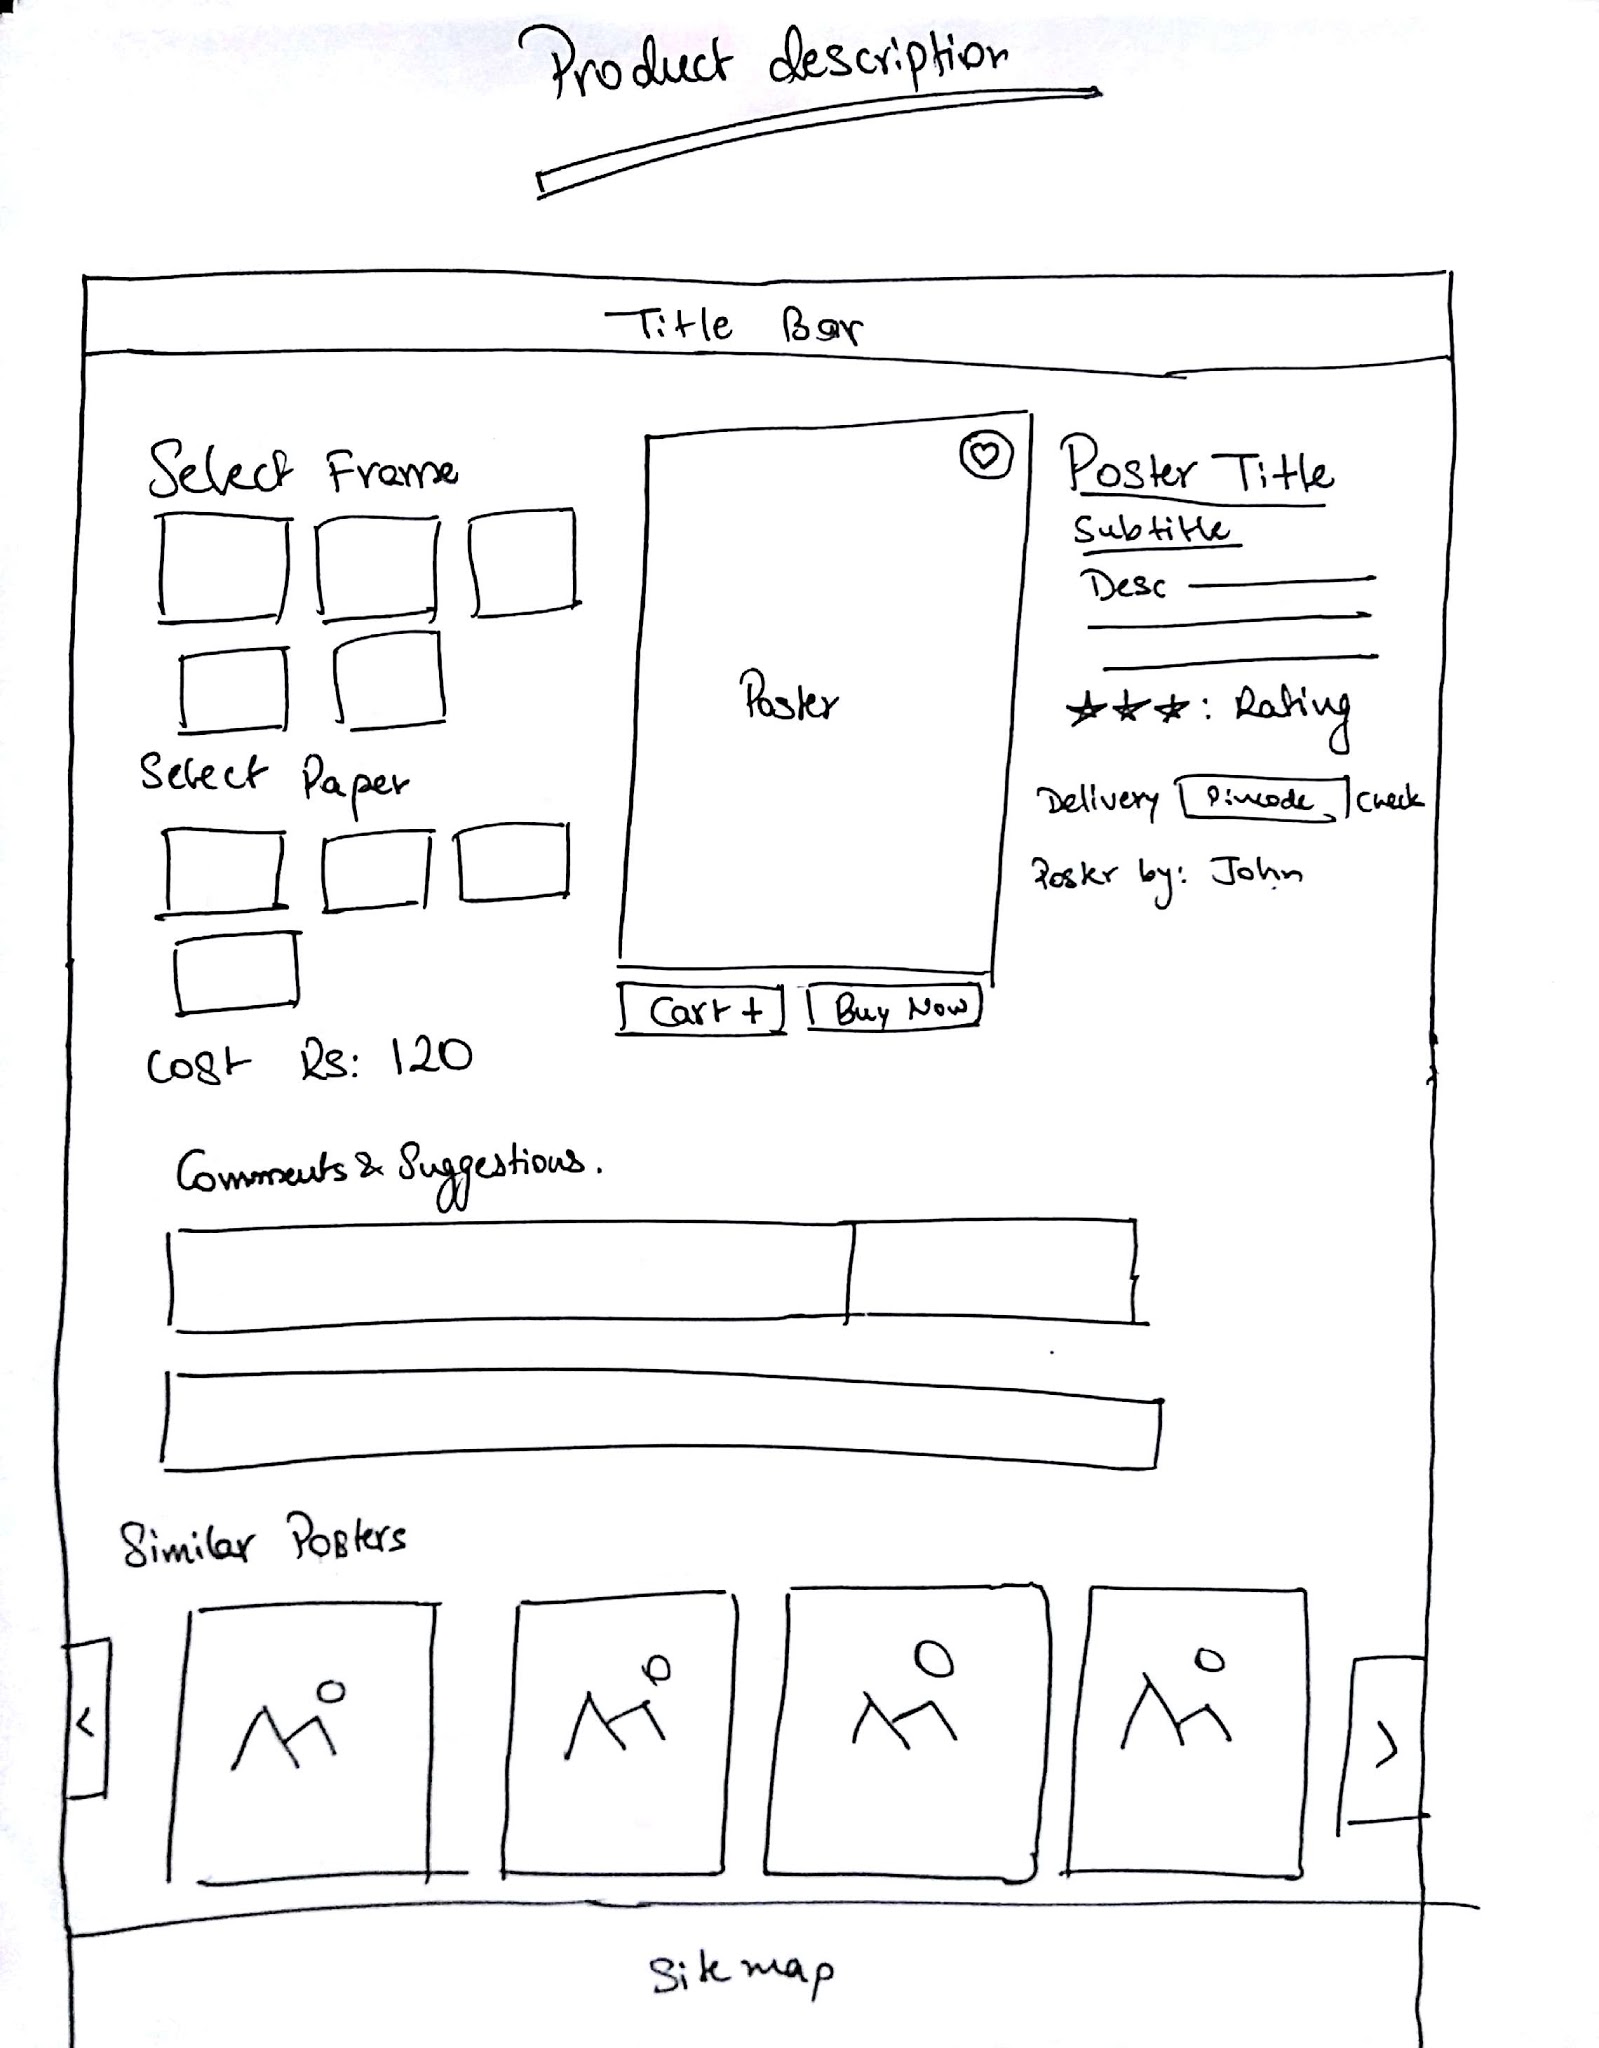 Product description
Title Bar
Select Frame
Select Paper
Cost Rs: 120
Poster
Cart +
Buy Now
Poster Title
Subtitle
Desc
: Rating
Delivery Pincode Check
Poster by: John
Comments & Suggestions.
Similar Posters
<
>
Sitemap